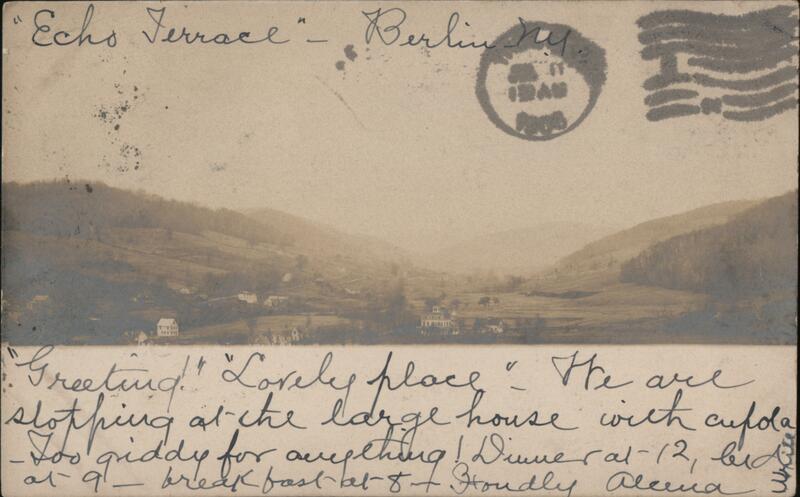 "Echo Terrace" – Berlin NY.
11
AM
"Greeting!" "Lovely place" – We are
stopping at the large house with cupola
– Too giddy for anything! Dinner at 12, bed
at 9 – breakfast at 8 – Fondly Alcena
Write